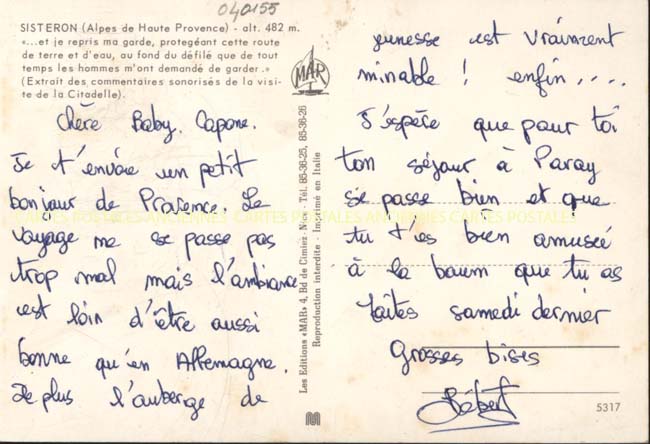 040155
SISTERON (Alpes de Haute Provence) - alt. 482 m.
«...et je repris ma garde, protegéant cette route
de terre et d'eau, au fond du défilé que de tout
temps les hommes m'ont demandé de garder.»
(Extrait des commentaires sonorisés de la visi-
te de la Citadelle).
MAR
Chère Baby. Capone.
Je t'envoie un petit
bonjour de Provence. Le
voyage me se passe pas
trop mal mais l'ambiance
est loin d'être aussi
bonne qu'en Allemagne.
De plus l'auberge de
Les Editions «MAR» 4, Bd de Cimiez - Nice - Tél. 85-36-25, 85-36-26
Reproduction interdite - Imprimé en Italie
jeunesse est vraiment
minable ! enfin ....
J'espère que pour toi
ton séjour à Paray
se passe bien et que
tu t'es bien amusée
à la boum que tu as
faites samedi dernier
Grosses bises
Bébert
5317
CARTES POSTALES ANCIENNES CARTES POSTALES ANCIENNES CARTES POSTALES